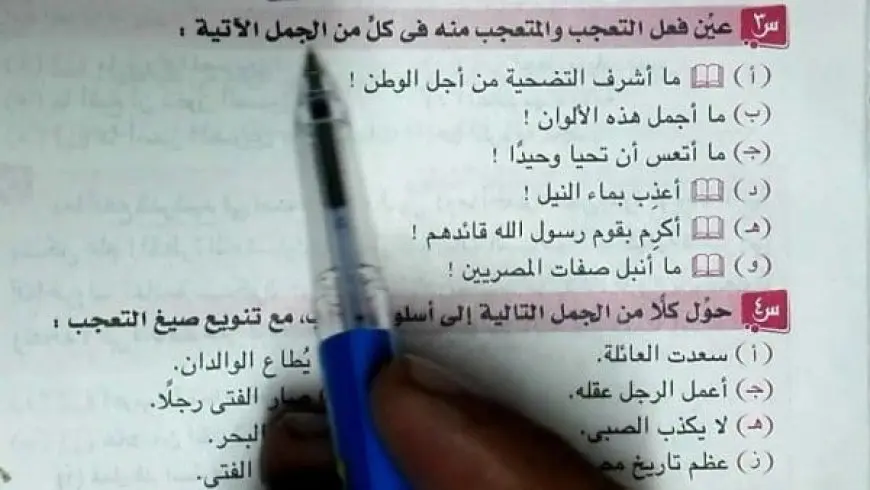 س٣ عيّن فعل التعجب والمتعجب منه فى كلّ من الجمل الآتية :
(أ) ما أشرف التضحية من أجل الوطن !
(ب) ما أجمل هذه الألوان !
(جـ) ما أتعس أن تحيا وحيدًا !
(د) أعذِب بماء النيل !
(هـ) أكرِم بقوم رسول الله قائدهم !
(و) ما أنبل صفات المصريين !
س٤ حوّل كلًا من الجمل التالية إلى مع تنويع صيغ التعجب :
(أ) سعدت العائلة. يُطاع الوالدان.
(جـ) أعمل الرجل عقله. صار الفتى رجلًا.
(هـ) لا يكذب الصبى. البحر.
(ز) عظم تاريخ الفتى.